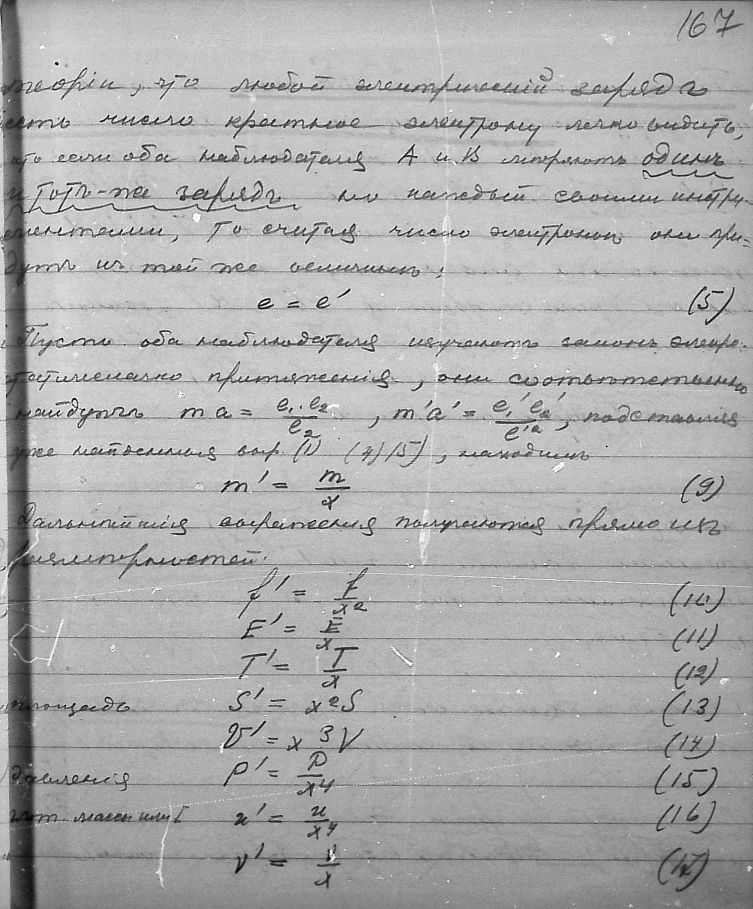 167
теорiи, что любой электрическiй зарядъ
есть число кратное электрону легко видить,
что если оба наблюдателя А и В мѣряютъ одинъ
и тотъ-же зарядъ но каждый своими инстру-
ментами, то считая число электроновъ они при-
дутъ къ той же величинѣ:
e = e′ (5)
Пусть оба наблюдателя изучаютъ законъ электро-
статическаго притяженiя, они соотвѣтственно
найдутъ ma = e₁·e₂/l², m′a′ = e₁′e₂′/l′², подставляя
уже найденныя выр. (1) (4) (5), находимъ
m′ = m/x (9)
Дальнѣйшiя выраженiя получаются прямо изъ
размѣрностей:
f′ = f/x² (10)
E′ = E/x (11)
T′ = T/x (12)
площадь S′ = x²S (13)
V′ = x³V (14)
давленiя P′ = P/x⁴ (15)
плот. массы или u′ = u/x⁴ (16)
ν′ = ν/x (17)